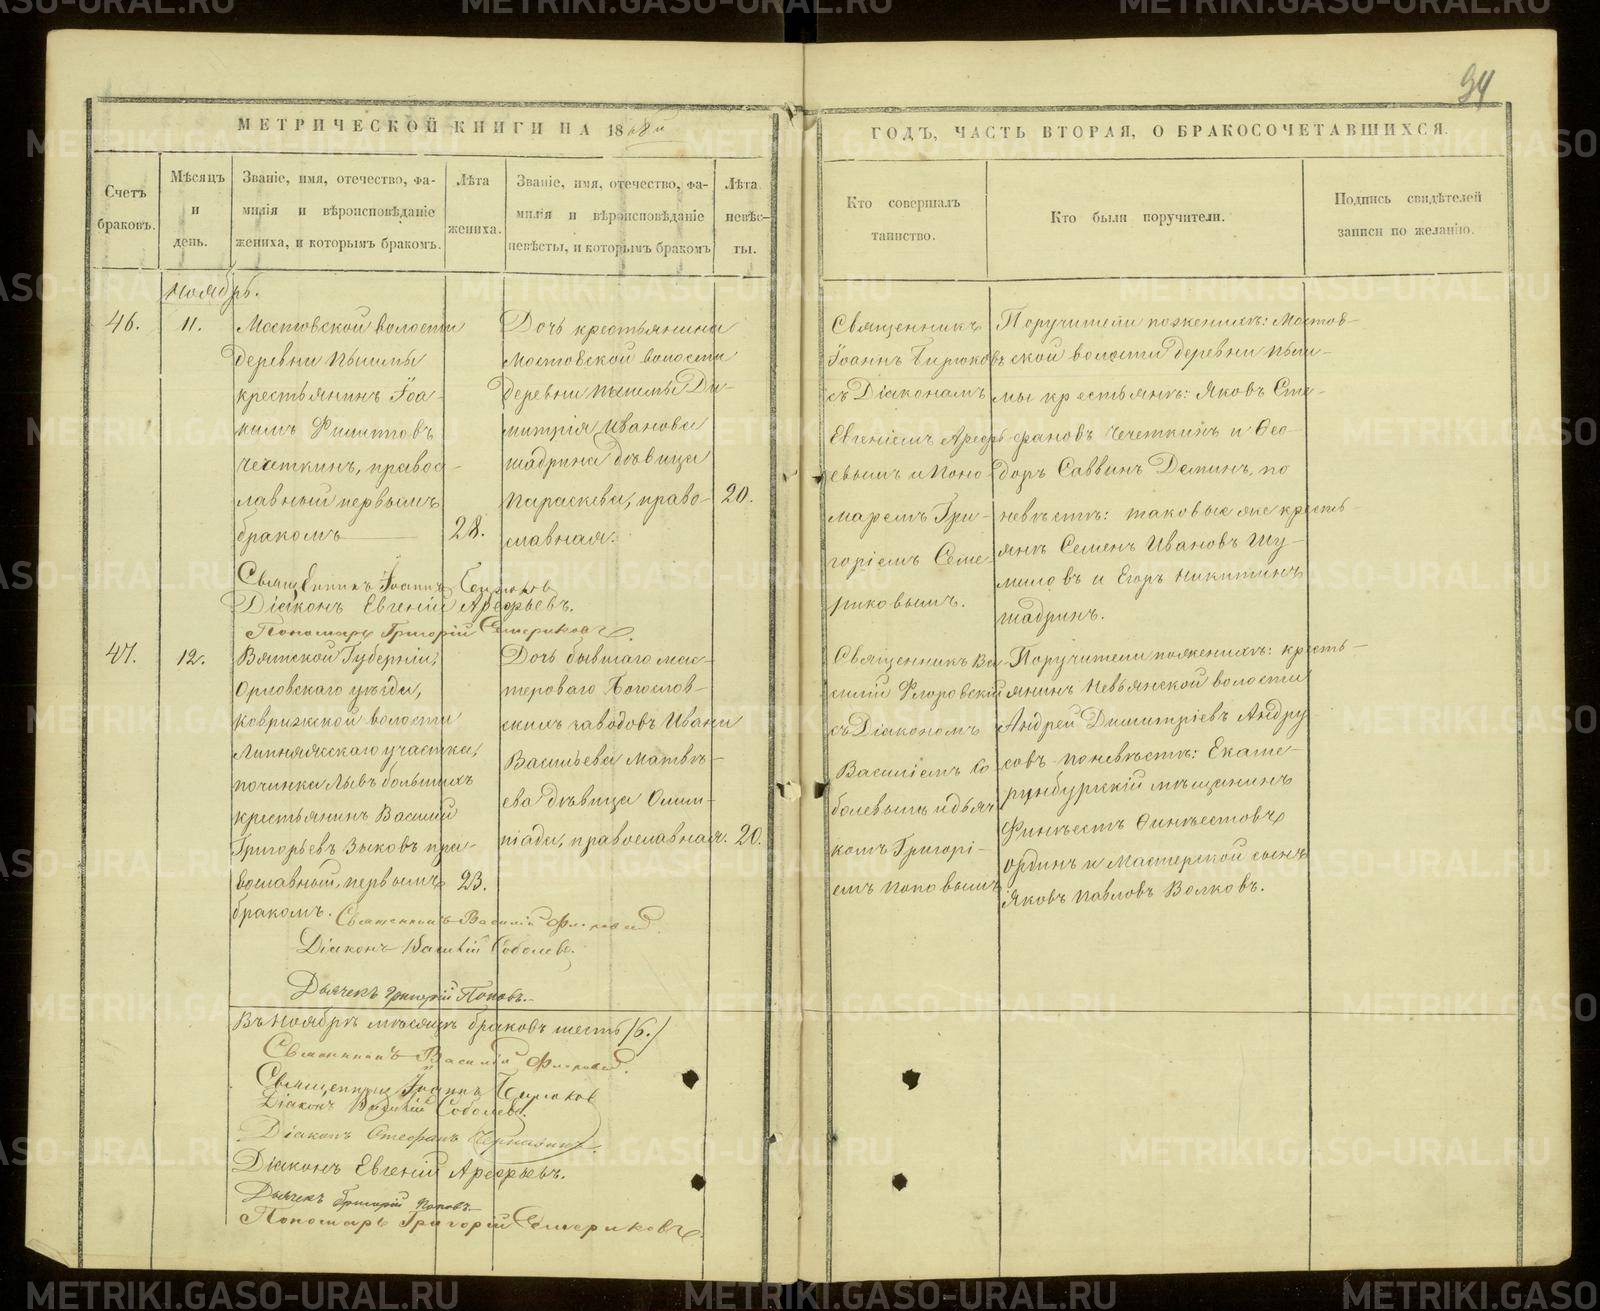 94
МЕТРИЧЕСКОЙ КНИГИ НА 1868й
ГОДЪ, ЧАСТЬ ВТОРАЯ, О БРАКОСОЧЕТАВШИХСЯ.
Счетъ
браковъ.
Мѣсяцъ
и
день.
Званіе, имя, отечество, фа-
милія и вѣроисповѣданіе
жениха, и которымъ бракомъ.
Лѣта
жениха.
Званіе, имя, отечество, фа-
милія и вѣроисповѣданіе
невѣсты, и которымъ бракомъ
Лѣта
невѣс-
ты.
Кто совершалъ
таинство.
Кто были поручители.
Подпись свидѣтелей
записи по желанію.
Ноябрь.
46.
11.
Мостовской волости
деревни Пышмы
крестьянинъ Іоа-
кимъ Филиттовъ
Чечеткинъ, правос-
лавный первымъ
бракомъ
28.
Дочь крестьянина
Мостовской волости
деревни Пышмы Ди-
митрія Иванова
Шадрина дѣвица
Параскева, право-
славная.
20.
Священникъ
Іоаннъ Бирюковъ
съ Діакономъ
Евгеніемъ Арефь-
евымъ и Поно-
маремъ Гри-
горіемъ Семе-
риковымъ.
Поручители по женихѣ: Мостов-
ской волости деревни Пыш-
мы крестьянѣ: Яковъ Сте-
фановъ Чечеткинъ и Ѳео-
доръ Саввинъ Деминъ, по
невѣстѣ: таковые же кресть-
янѣ Семенъ Ивановъ Шу-
миловъ и Егоръ Никитинъ
Шадринъ.
Священникъ Іоаннъ Бирюков
Діаконъ Евгеній Арефьевъ.
Пономарь Григорій Семериковъ.
47.
12.
Вятской Губерніи,
Орловскаго уѣзда,
Коврижской волости
участка,
починка большихъ
крестьянинъ Василий
Григорьевъ Зыковъ пра-
вославный, первымъ
бракомъ.
23.
Дочь бывшаго мас-
тероваго Богослов-
скихъ заводовъ Ивана
Васильева Матвѣ-
ева дѣвица Олим-
піада, православная.
20.
Священникъ Ва-
силий Флоровскій
съ Діакономъ
Василіемъ Со-
болевымъ и дьяч-
комъ Григорі-
емъ Поповымъ
Поручители по женихѣ: кресть-
янинъ Невьянской волости
Андрей Димитріевъ Андру
совъ по невѣстѣ: Екате-
ринбургскій мѣщанинъ
и Мастерской сынъ
Яковъ Павловъ Волковъ.
Священникъ Василій Флоровскій.
Діаконъ Василій Соболевъ.
Дьячекъ Григорій Поповъ.
Въ Ноябрѣ мѣсяцѣ браковъ шесть /6./
Священникъ Василій Флоровскій.
Священникъ Іоаннъ Бирюков
Діаконъ Василій Соболевъ.
Діаконъ Стефанъ
Діаконъ Евгеній Арефьевъ.
Дьячекъ Григорій Поповъ.
Пономарь Григорій Семериковъ.
METRIKI.GASO-URAL.RU